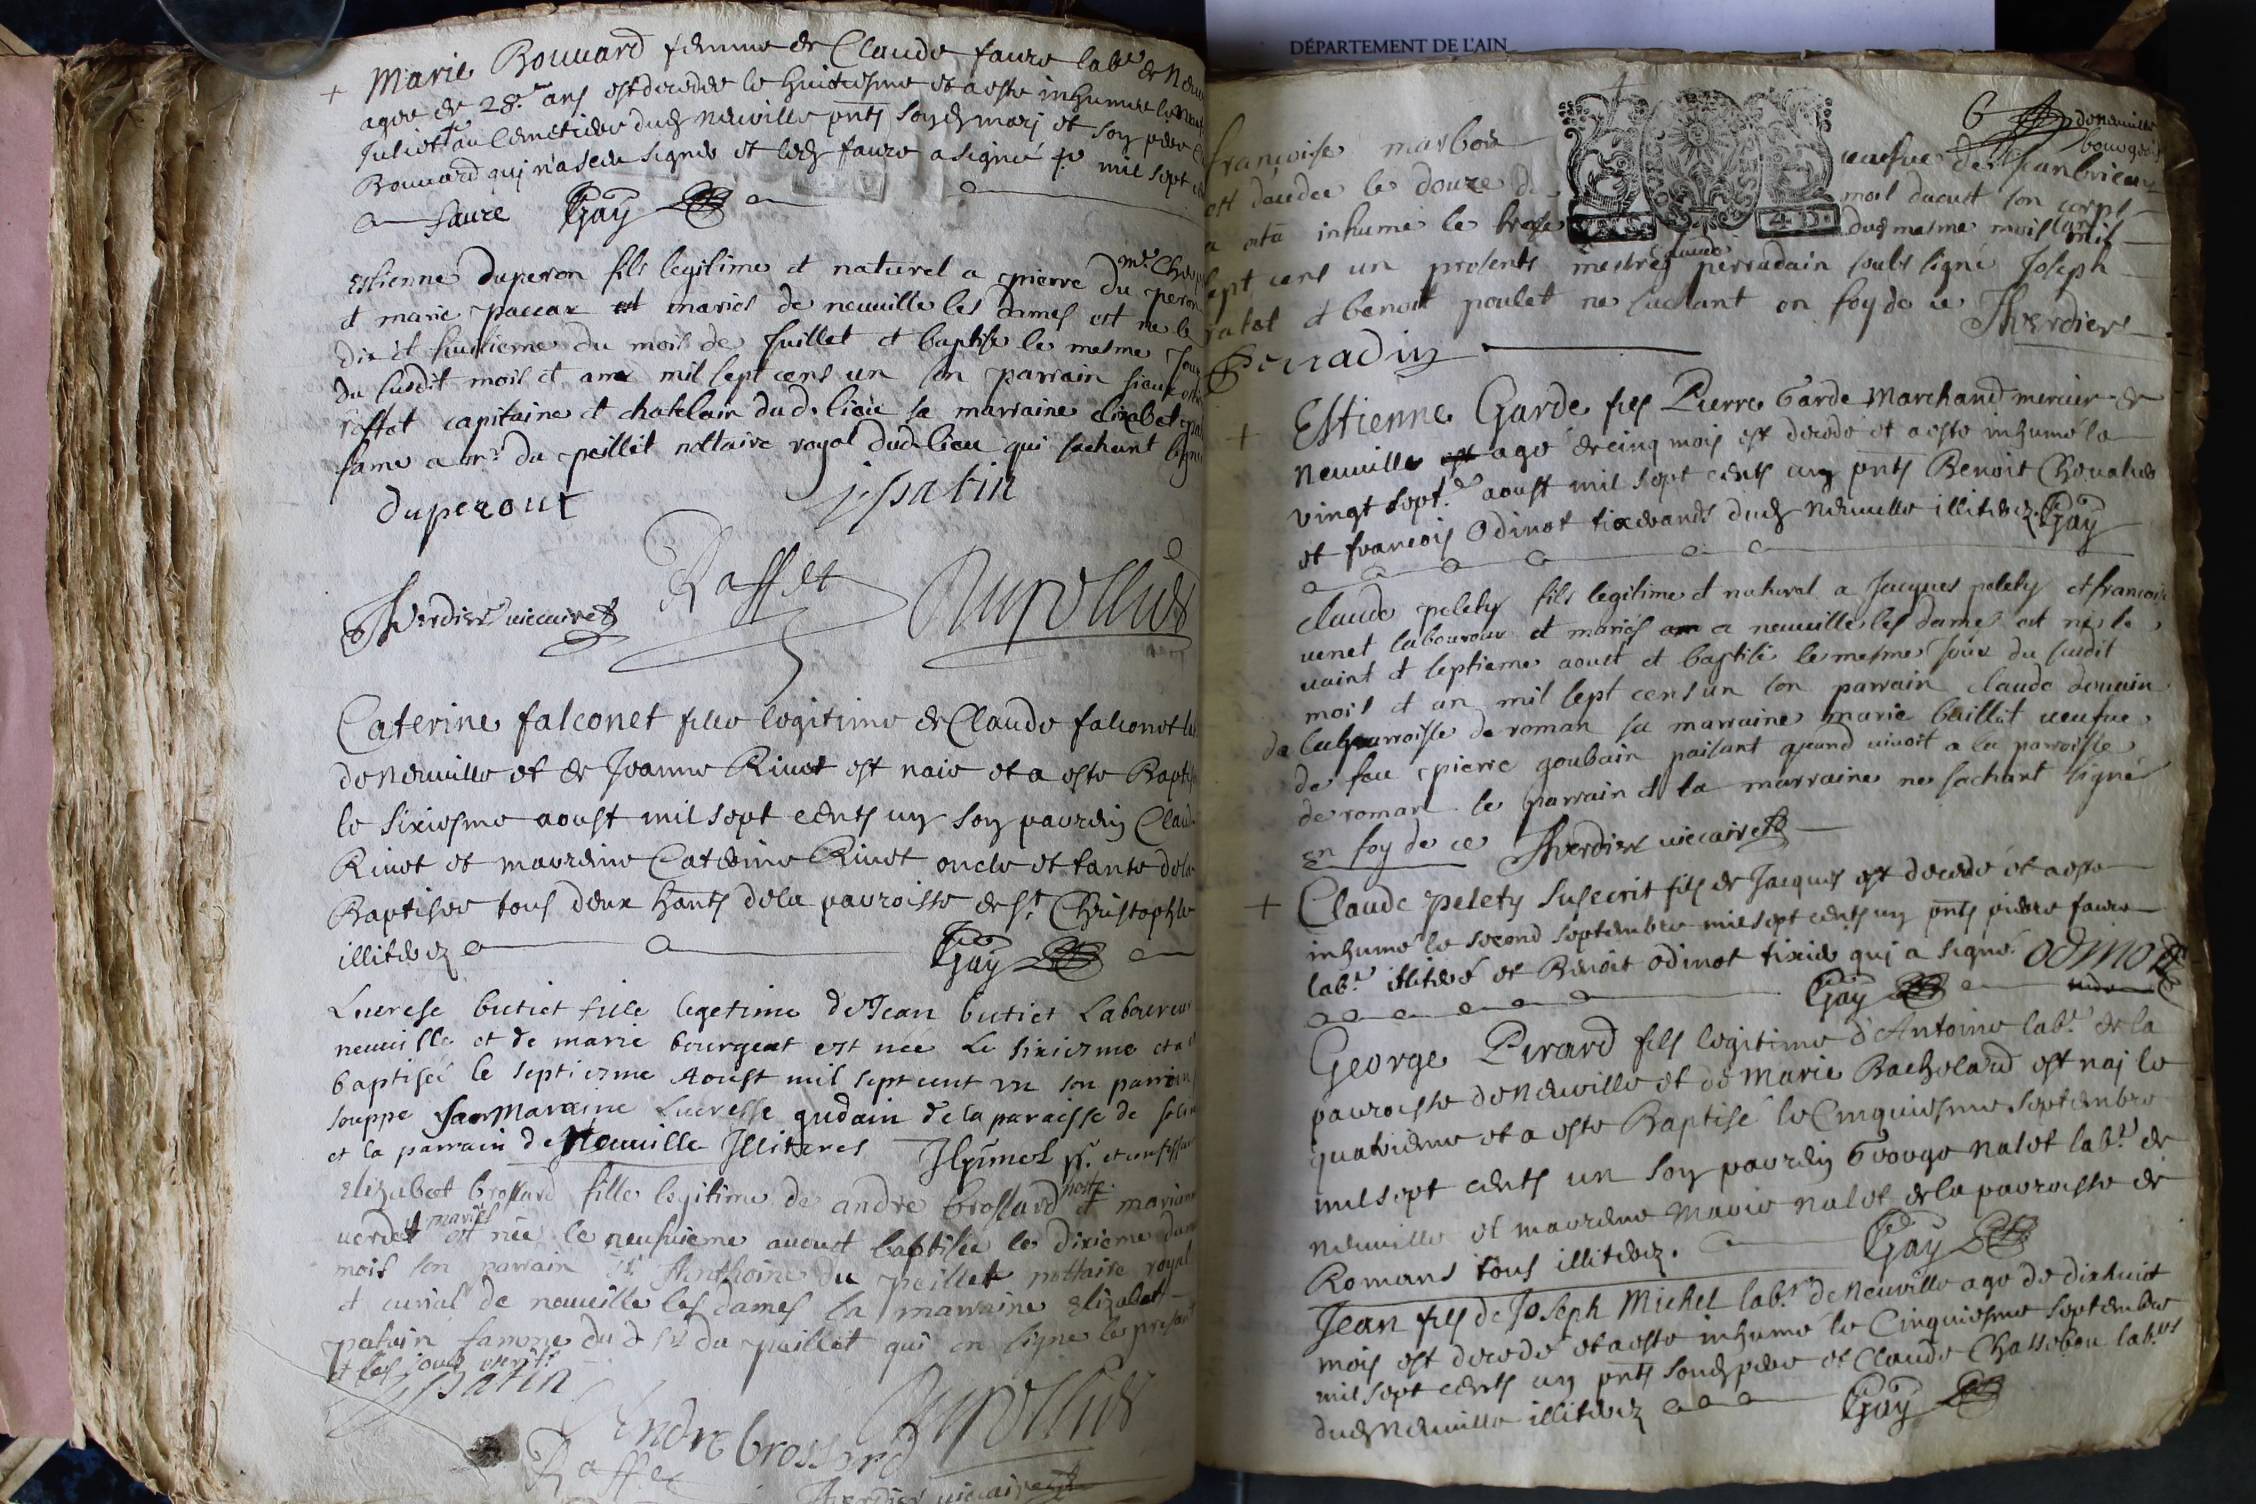 + Marie Bouuard femme de Claude faure lab.r de
agee de 28.e ans est decedee le huitiesme et a este inhumee le
Juliet au Cemetiere dud neuville pnts son mari et son pere
Bouuard qui n'a sceu signer et led faure a signé mil sept
faure Gay
Estienne duperon fils legitime et naturel a pierre du peron m.e
et marie paccar mariés de neuville les dames est ne le
dix et huitieme du mois de Juillet et baptise le mesme Jour
du susdit mois et an mil sept cens un son parrain sieur
raffet capitaine et chatelain dud. lieu sa marraine elizabet
fame a m.r du peillet nottaire royal dud lieu qui sachant
duperoux j. patin
Verdier viccaire Raffet Dupellier
Caterine falconet fille legitime de Claude falconet
de neuville et de Jeanne Riuet est naie et a este
le sixiesme aoust mil sept cents un son parrein
Riuet et marreine Caterine Riuet oncle et tante de la
Baptisee tous deux de la parroisse de St Christophle
illiterez Gay
Lucresse butiet fille legetime de Jean butiet Laboureur
neuville et de marie bourgeat est nee Le sixiezme et a
baptisée le septiezme Aoust mil sept cent vn son parrin
souppe sa Maraine Lucresse gudain de la paraisse de
et la parrain de Neuville Illiteres
Elizabeet brossard fille legitime de andre brossard et
verdet mariés est née le neufuieme auoust babtisee le dixieme
mois son parrain sr Anthoine du peillet nottaire royal
et curial de neuville les dames la marraine Elizabet
patin famme du d sr du peillet qui on signe le present
et les
j patin
Andre brossard Dupellier
Raffet
Verdier viccaire
DÉPARTEMENT DE L'AIN
françoise marbou veufue de
est decedee le douze de mois daoust son corps
a eté inhume le treze dud mesme mois
sept cens un presents perradain soubs signé Joseph
ratet et benoit poulet ne sachant en foy de ce Verdier
Perradin
+ Estienne Garde fils Pierre Garde Marchand mercier de
Neuville agé de cinq mois est decede et a este inhumé le
vingt sept.e aoust mil sept cents un pnts Benoit
et francois Odinot tixerands dud Neuville illiterez. Gay
Claude pelety fils legitime et naturel a Jacques pelety et francoise
venet laboureur et mariés a neuville les dames est né le
vaint et septieme aoust et baptisé le mesme Jour du susdit
mois et an mil sept cens un son parrain claude douuin
de la parroisse de roman sa marraine marie baillat veufue
de feu pierre goubain paisant quand vivoit a la parroisse
de roman le parrain et la marraine ne sachant signé
en foy de ce Verdier viccaire
+ Claude pelety suscrit fils de Jacques est decedé et a este
inhumé le second septembre mil sept cents un pnts pierre faure
lab.r illiteré et Benoit odinot tixier qui a signé. Odinot
Gay
George Perard fils legitime d'Antoine lab.r de la
parroisse de neuville et de Marie Bachelard est nai le
quatrieme et a este Baptisé le Cinquiesme septembre
mil sept cents un son parrein George nalet lab.r de
neuville et marreine Marie nalet de la parroisse de
Romans tous illiterez. Gay
Jean fils de Joseph Michel lab.r de Neuville age de dixhuit
mois est decedé et a este inhumé le Cinquiesme septembre
mil sept cents un pnts sond pere et Claude Chassebou lab.rs
dud Neuville illiterez Gay